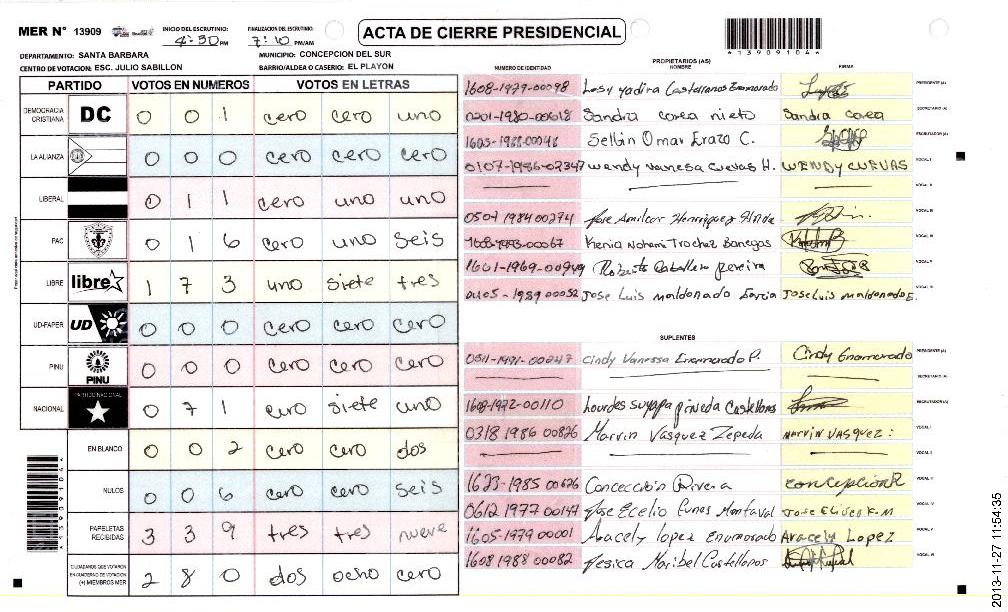 MER N° 13909 INICIO DEL ESCRUTINIO: 4:30 PM FINALIZACION DEL ESCRUTINIO: 7:10 PM/AM ACTA DE CIERRE PRESIDENCIAL *13909104*
DEPARTAMENTO: SANTA BARBARA MUNICIPIO: CONCEPCION DEL SUR
CENTRO DE VOTACION: ESC. JULIO SABILLON BARRIO/ALDEA O CASERIO: EL PLAYON
PARTIDO VOTOS EN NUMEROS VOTOS EN LETRAS
DEMOCRACIA CRISTIANA DC 0 0 1 cero cero uno
LA ALIANZA 0 0 0 cero cero cero
LIBERAL 0 1 1 cero uno uno
PAC 0 1 6 cero uno seis
LIBRE libre 1 7 3 uno siete tres
UD-FAPER UD 0 0 0 cero cero cero
PINU PINU 0 0 0 cero cero cero
NACIONAL PARTIDO NACIONAL 0 7 1 cero siete uno
EN BLANCO 0 0 2 cero cero dos
NULOS 0 0 6 cero cero seis
PAPELETAS RECIBIDAS 3 3 9 tres tres nueve
CIUDADANOS QUE VOTARON EN CUADERNO DE VOTACION (+) MIEMBROS MER 2 8 0 dos ocho cero
PROPIETARIOS (AS)
NUMERO DE IDENTIDAD NOMBRE FIRMA
1608-1979-00098 Lesy yadira Castellanos Enamorado PRESIDENTE (A)
0201-1980-00618 Sandra corea nieto Sandra corea SECRETARIO (A)
Selbin Omar Erazo C. ESCRUTADOR (A)
0107-1986-02347 wendy vanesa cuevas H. WENDY CUEVAS VOCAL I
VOCAL II
0507 1984 00274 Jose Amilcar Henriquez VOCAL III
Kenia Nohemi Trochez Banegas
1601-1969-00949 Roberto Caballero pereira VOCAL V
1989 00052 Jose Luis maldonado Garcia Jose Luis maldonado
SUPLENTES
Cindy Vanessa Enamorado P. Cindy Enamorado PRESIDENTE (A)
SECRETARIO (A)
1608-1972-00110 Lourdes suyapa pineda Castellanos ESCRUTADOR (A)
0318 1986 00826 Marvin Vasquez Zepeda MARVIN VASQUEZ VOCAL I
VOCAL II
1623-1985 00626 Conceccion Rivera
0612 1977 00147 Jose Ecelio Funes
1605-1979 00001 Aracely lopez Enamorado Aracely Lopez
1608 1988 00082 Jesica Maribel Castellanos
*13909104*
2013-11-27 11:54:35